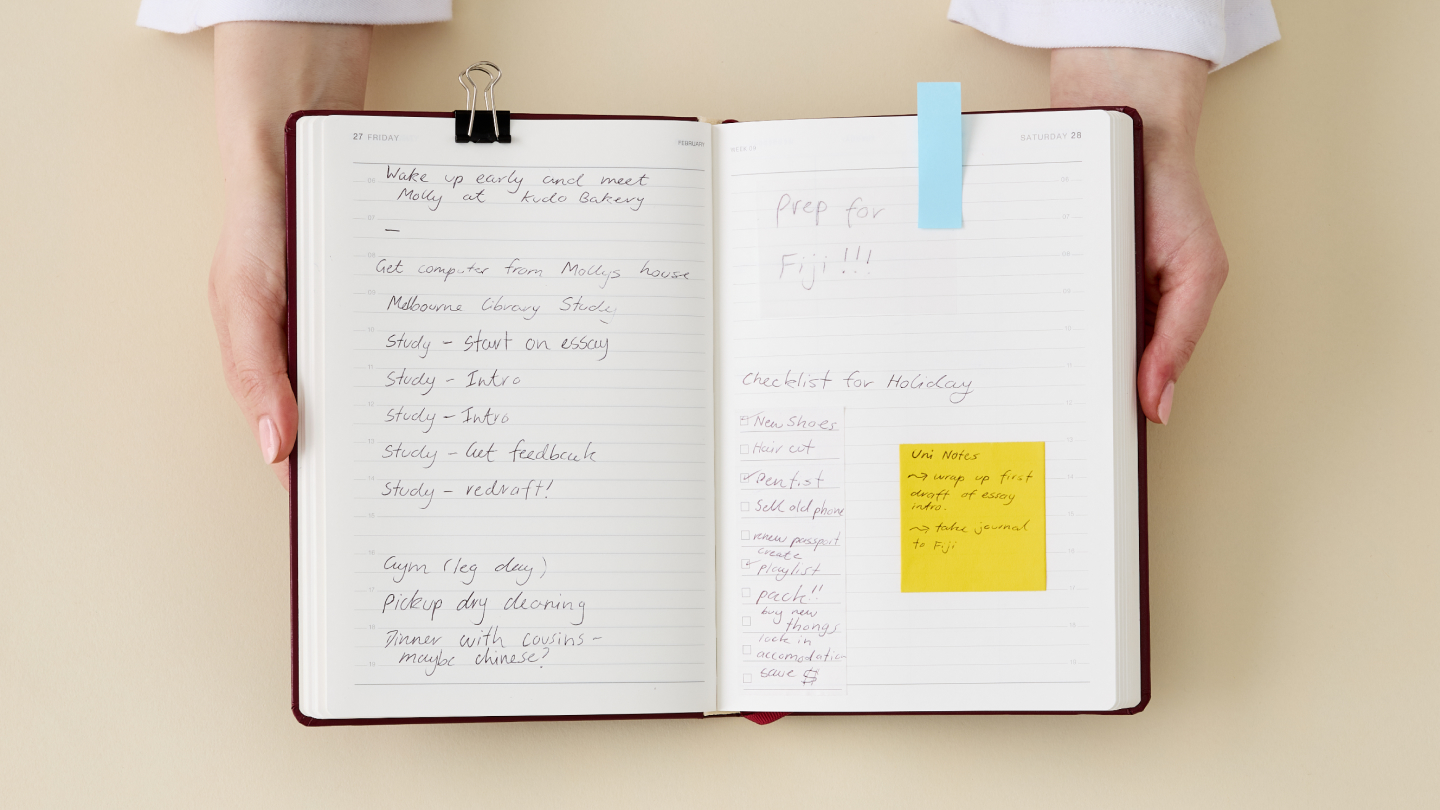 27 FRIDAY
FEBRUARY
Wake up early and meet
Molly at Kudo Bakery
—
Get computer from Mollys house
Melbourne Library Study
Study - start on essay
Study - Intro
Study - Intro
Study - Get feedback
Study - redraft!
Gym (leg day)
Pickup dry cleaning
Dinner with cousins -
maybe chinese?
WEEK
SATURDAY 28
Prep for
Fiji!!!
Checklist for Holiday
New Shoes
Hair cut
Dentist
Sell old phone
renew passport
create
playlist
pack!!
buy new
thongs
lock in
accomodation
save $
Uni Notes
→ wrap up first
draft of essay
intro.
→ take journal
to Fiji